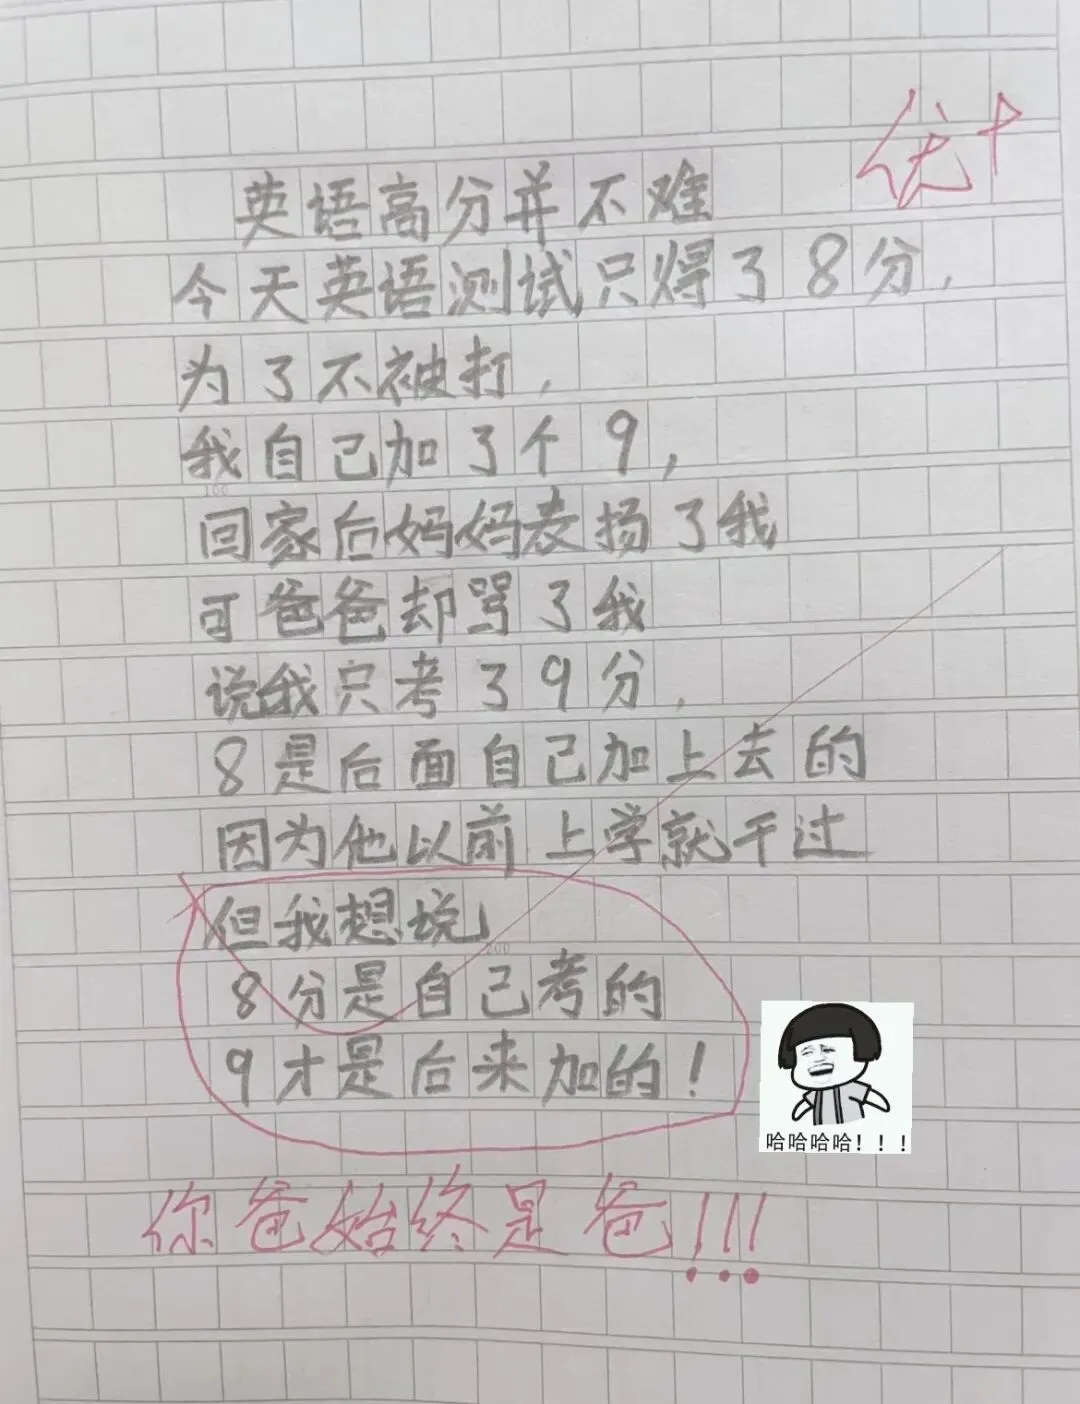 优+
英语高分并不难
今天英语测试只得了8分,
为了不被打,
我自己加了个9,
100
回家后妈妈表扬了我
可爸爸却骂了我
说我只考了9分,
8是后面自己加上去的
因为他以前上学就干过
但我想说
200
8分是自己考的
9才是后来加的!
哈哈哈哈!!!
你爸始终是爸!!!